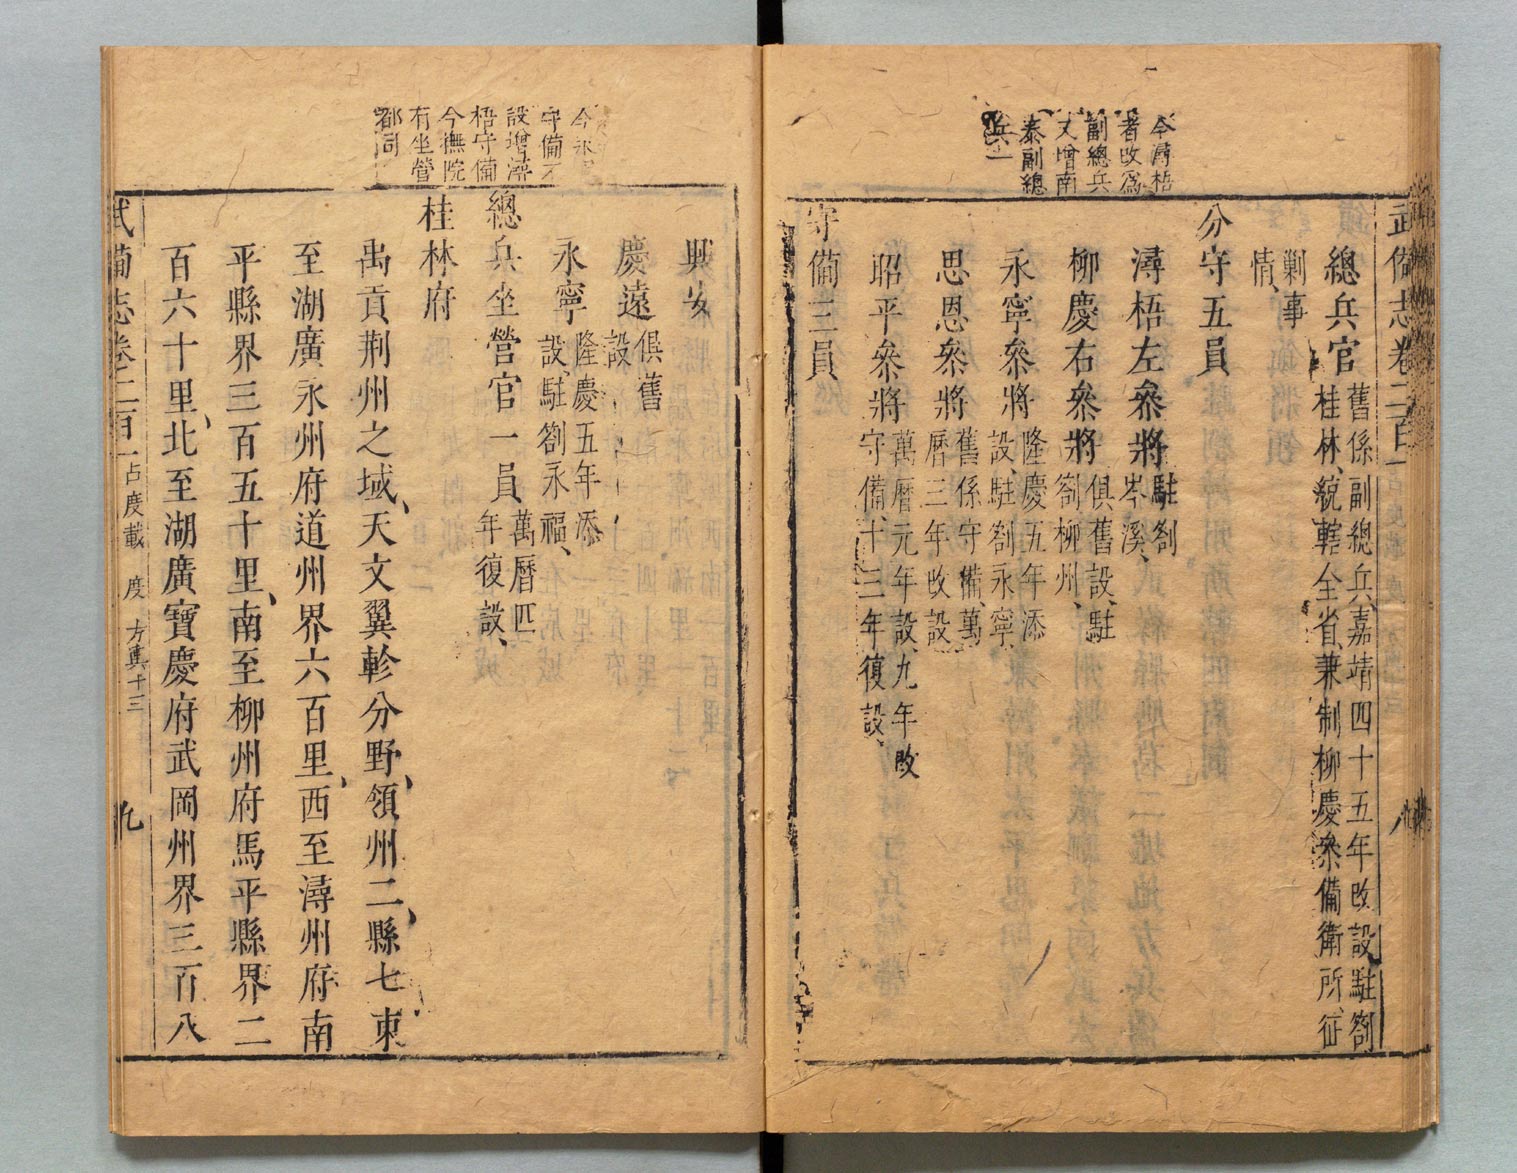 武備志卷二百一
八
今潯梧
者改爲
副總兵
又增南
泰副總
兵一
總兵官
舊係副總兵嘉靖四十五年改設駐劄
桂林統轄全省兼制柳慶叅備衛所征
剿事
情
分守五員
潯梧左叅將
駐劄
岑溪
柳慶右叅將
俱舊設駐
劄柳州
永寧叅將
隆慶五年添
設駐劄永寧
思恩叅將
舊係守備萬
曆三年改設
昭平叅將
萬曆元年設九年改
守備十三年復設
守備三員
今永
守備不
設增潯
梧守備
今撫院
有坐營
都司
興安
慶遠
俱舊
設
永寧
隆慶五年添
設駐劄永福
總兵坐營官一員
萬曆四
年復設
桂林府
禹貢荆州之域天文翼軫分野領州二縣七東
至湖廣永州府道州界六百里西至潯州府南
平縣界三百五十里南至柳州府馬平縣界二
百六十里北至湖廣寶慶府武岡州界三百八
武備志卷二百一
占度載 度 方輿十三
九